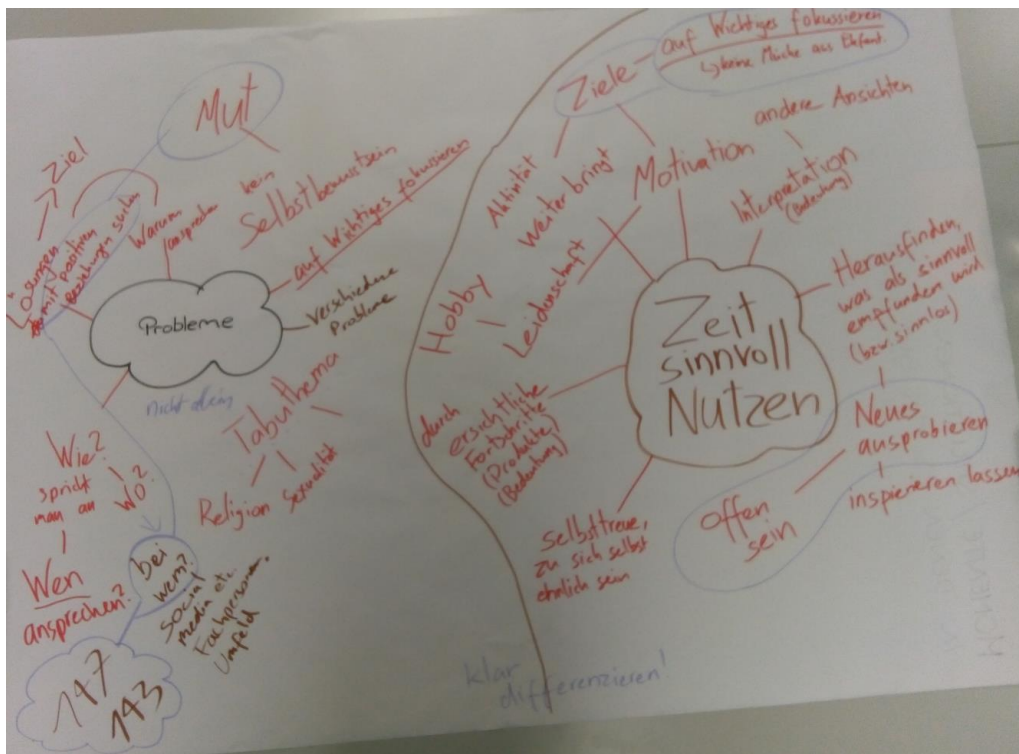 Mut
Ziel
Lösungen
mit positiven
Beziehungen
Warum
ansprechen
kein
Selbstbewusstsein
auf Wichtiges fokussieren
Probleme
verschiedene
Probleme
nicht allein
Tabuthema
Religion
Sexualität
Wie?
spricht
man an
Wo?
Wen
ansprechen?
bei
wem?
Social
media etc.
Fachpersonen
Umfeld
147
143
Ziele
auf Wichtiges fokussieren
↳ keine Mücke aus Elefant.
Aktivität
Weiter bringt
Motivation
andere Ansichten
Interpretation
(Bedeutung)
Hobby
Leidenschaft
Zeit
sinnvoll
Nutzen
Herausfinden,
was als sinnvoll
empfunden wird
(bzw. sinnlos)
Neues
ausprobieren
inspirieren lassen
offen
sein
durch
ersichtliche
Fortschritte
(Produkte,
Bedeutung)
selbsttreue,
zu sich selbst
ehrlich sein
klar
differenzieren!